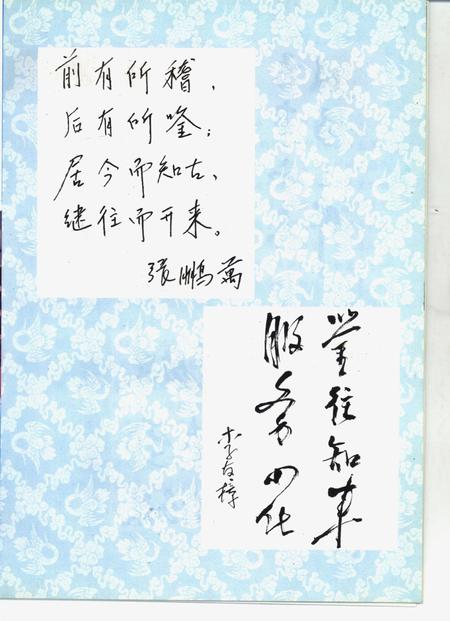 前有所稽，
后有所鉴；
居今而知古、
继往而开来。
張鵬萬
鉴往知来
服务四化
李友